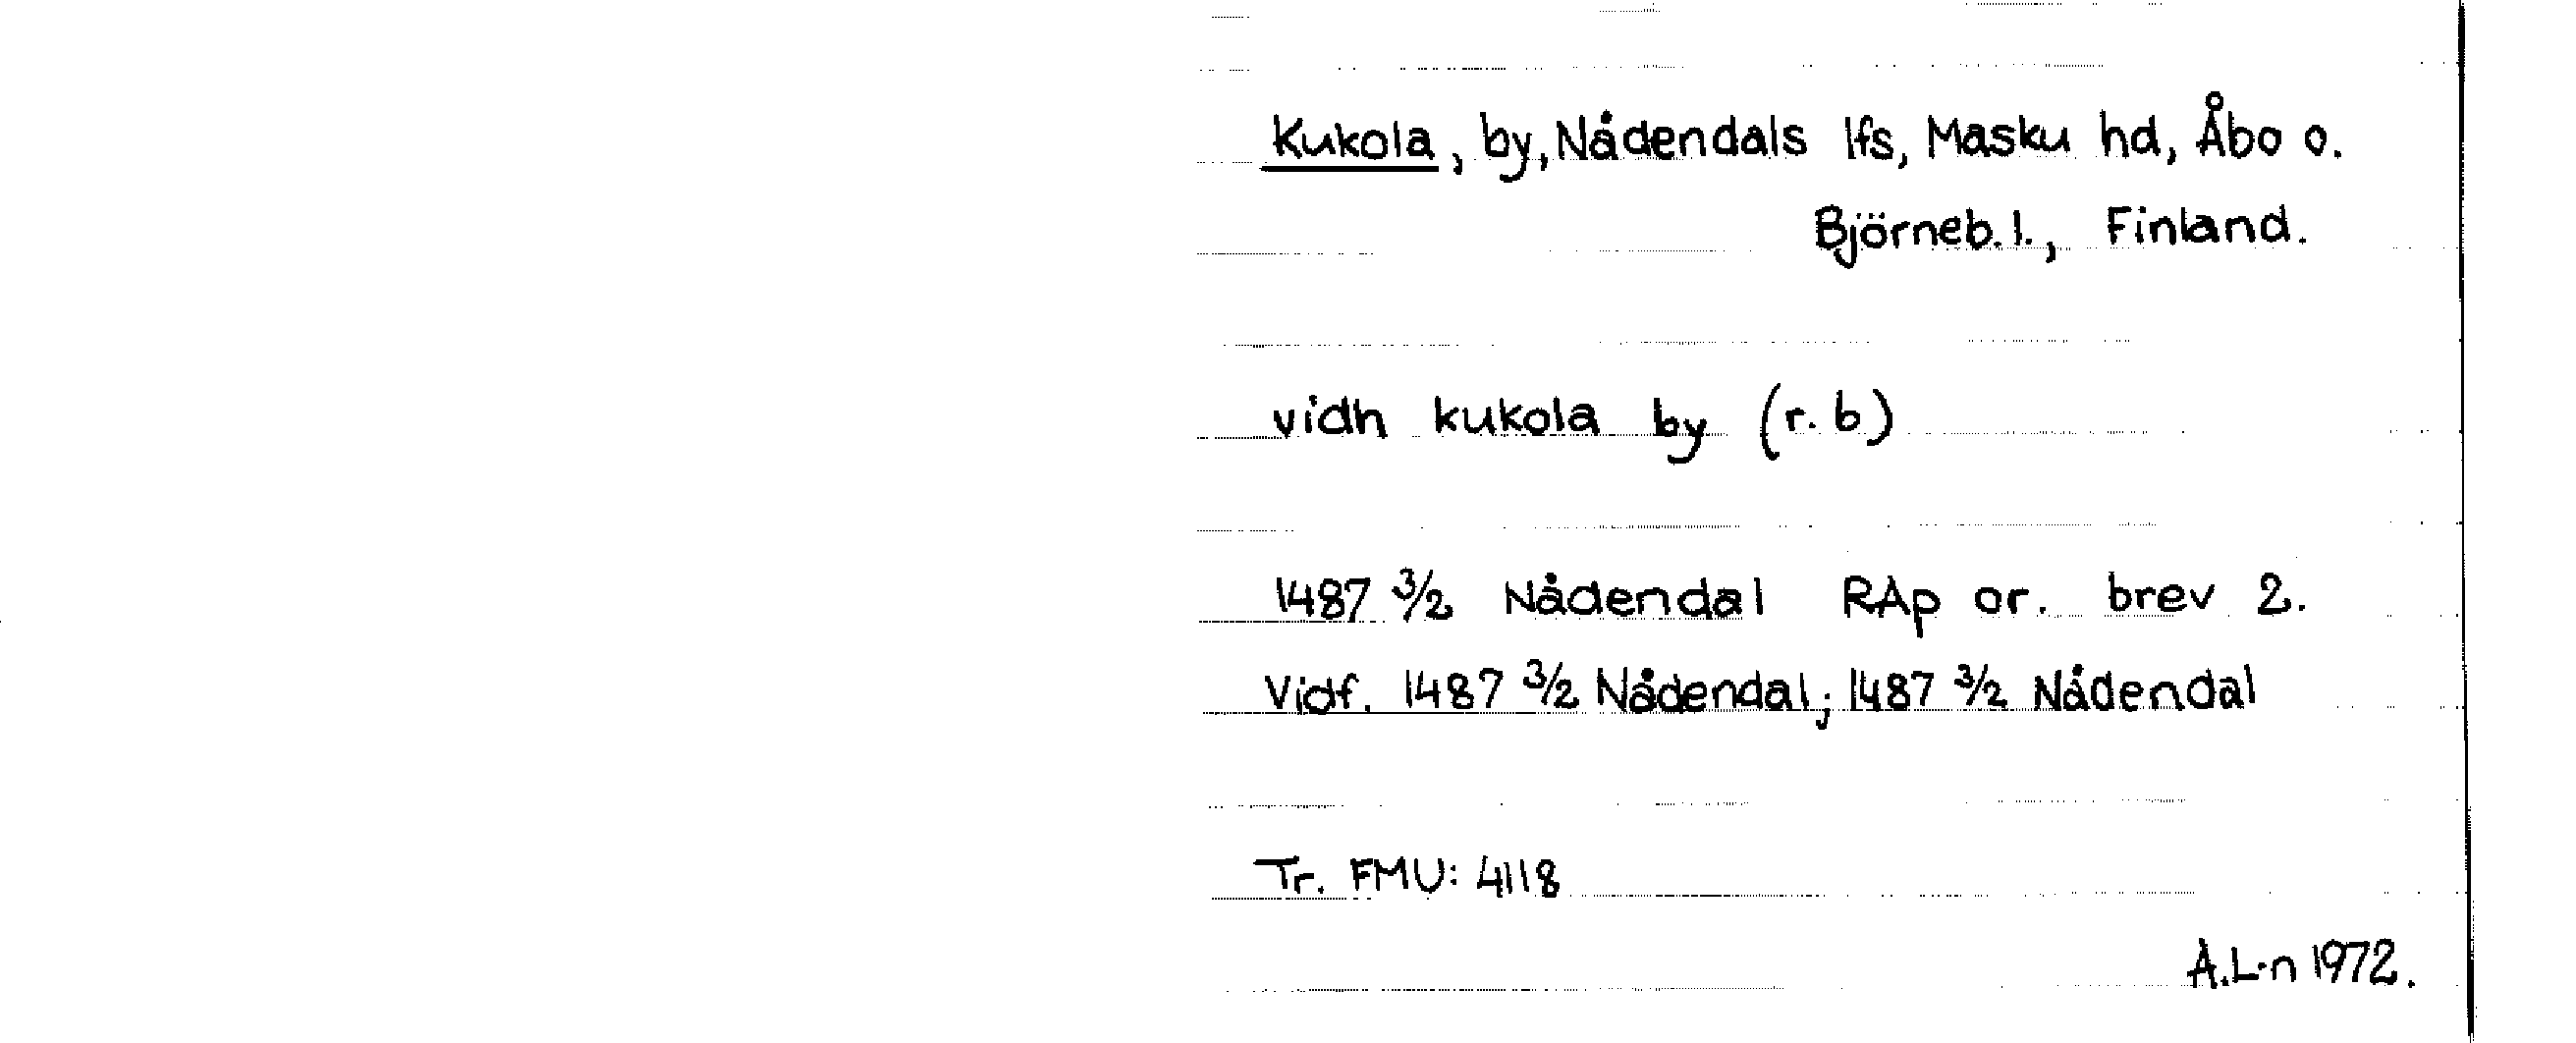 Kukola, by, Nådendals lfs, Masku hd, Åbo o.
Björneb. l., Finland.
vidh kukola by (r. b)
1487 3/2 Nådendal RAp or. brev 2.
Vidf. 1487 3/2 Nådendal; 1487 3/2 Nådendal
Tr. FMU: 4118
A.L-n 1972.